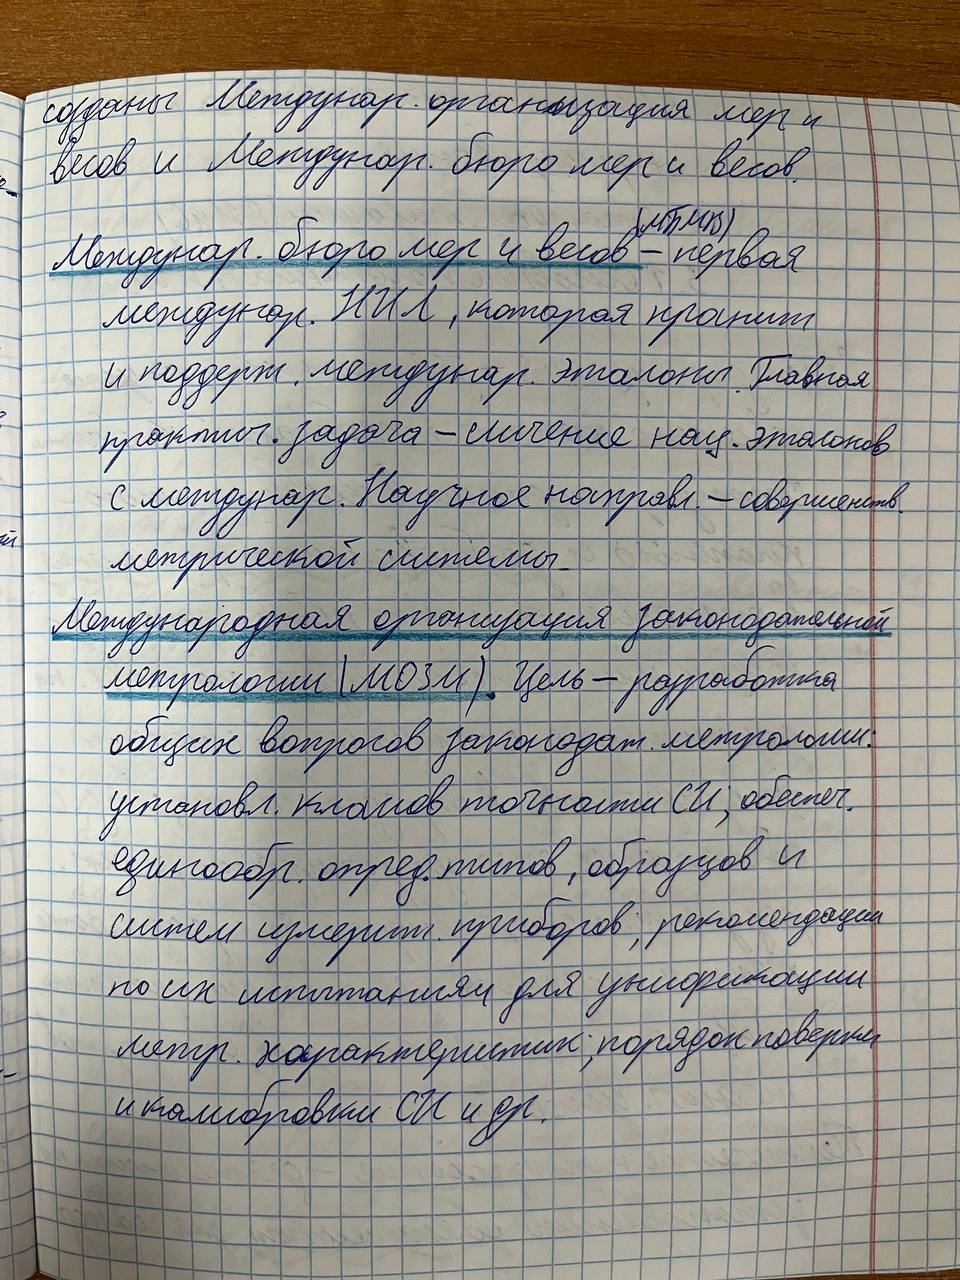 созданы Междунар. организация мер и
весов и Междунар. бюро мер и весов.
(МБМВ)
Междунар. бюро мер и весов – первая
междунар. НИЛ, которая хранит
и поддерж. междунар. эталоны. Главная
практич. задача – сличение нац. эталонов
с междунар. Научное направл. – совершенств.
метрической системы.
Международная организация законодательной
метрологии (МОЗМ). Цель – разработка
общих вопросов законодат. метрологии:
установл. классов точности СИ; обеспеч.
единообр. опред. типов, образцов и
систем измерит. приборов; рекомендации
по их испытаниям для унификации
метр. характеристик; порядок поверки
и калибровки СИ и др.